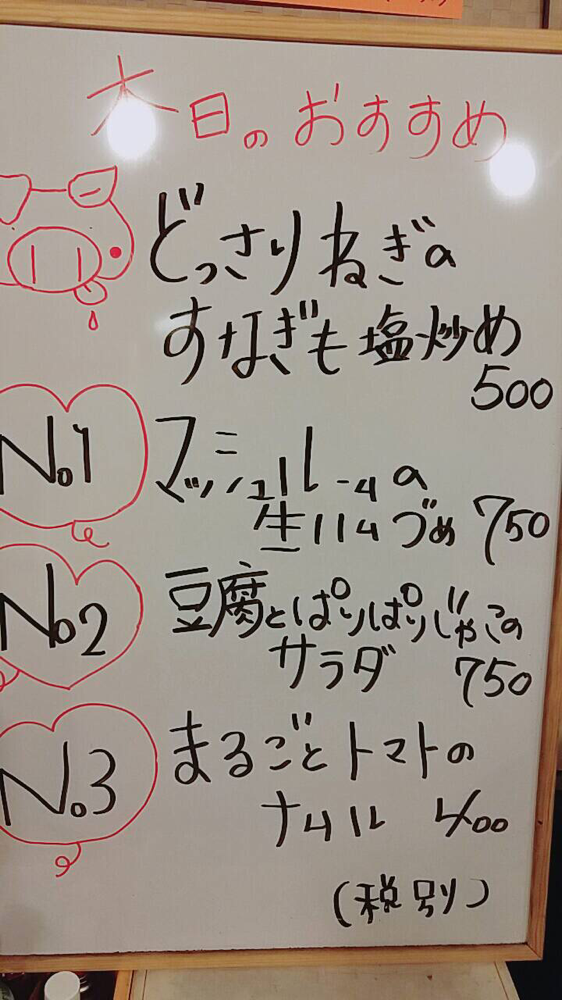 本日のおすすめ
どっさりねぎの
すなぎも塩炒め
500
No.1
マッシュルームの
生ハムづめ 750
No.2
豆腐とぱりぱりじゃこの
サラダ 750
No.3
まるごとトマトの
ナムル 400
(税別)